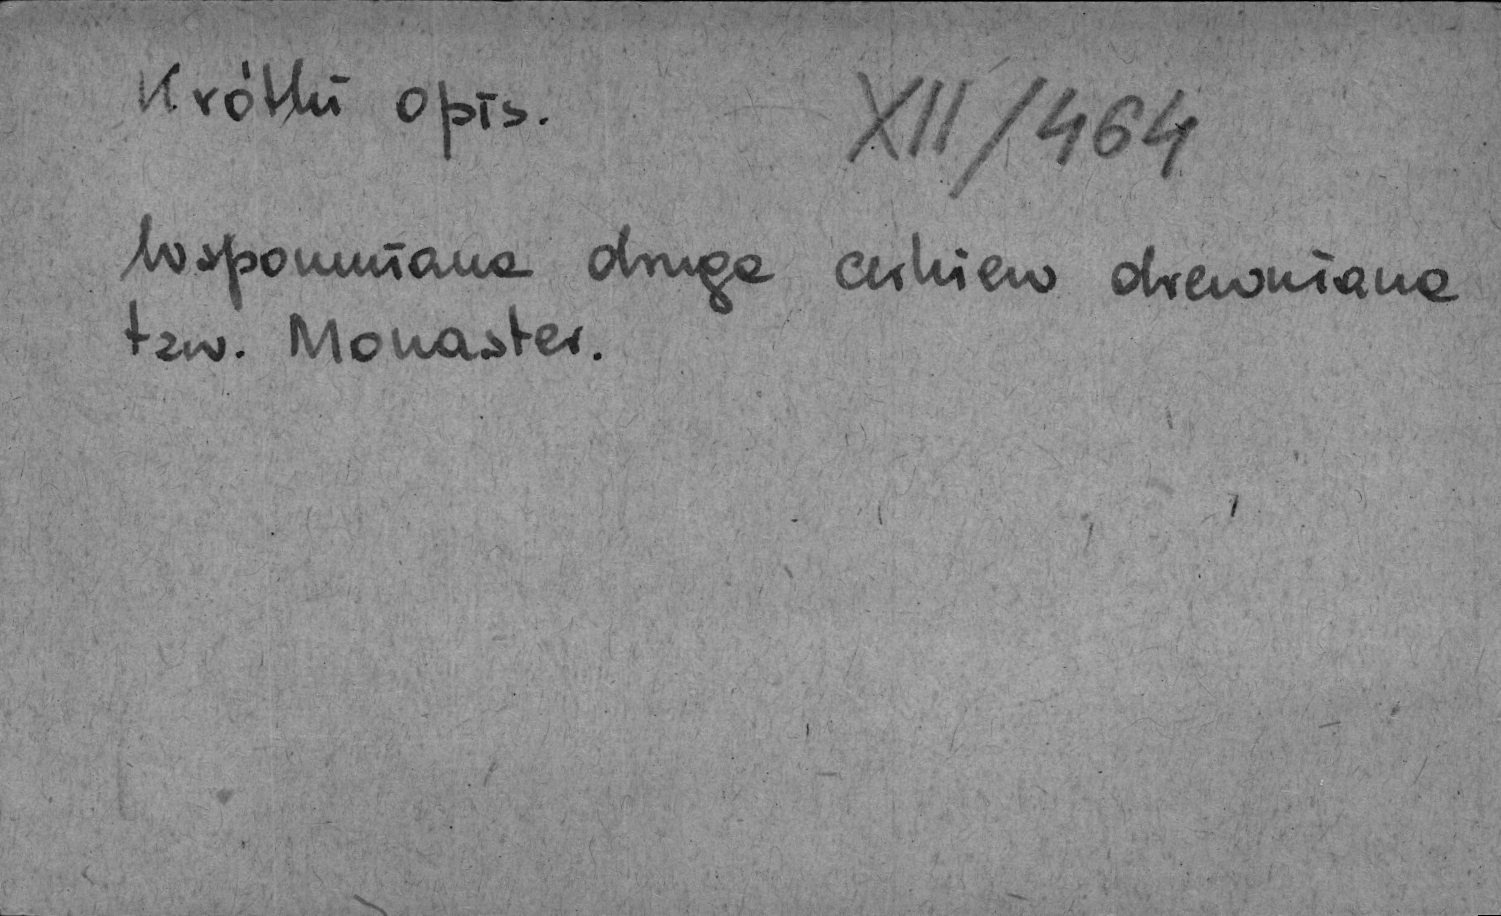 Krótki opis. XII/464
Wspomniana druga cerkiew drewniana
tzw. Monaster.